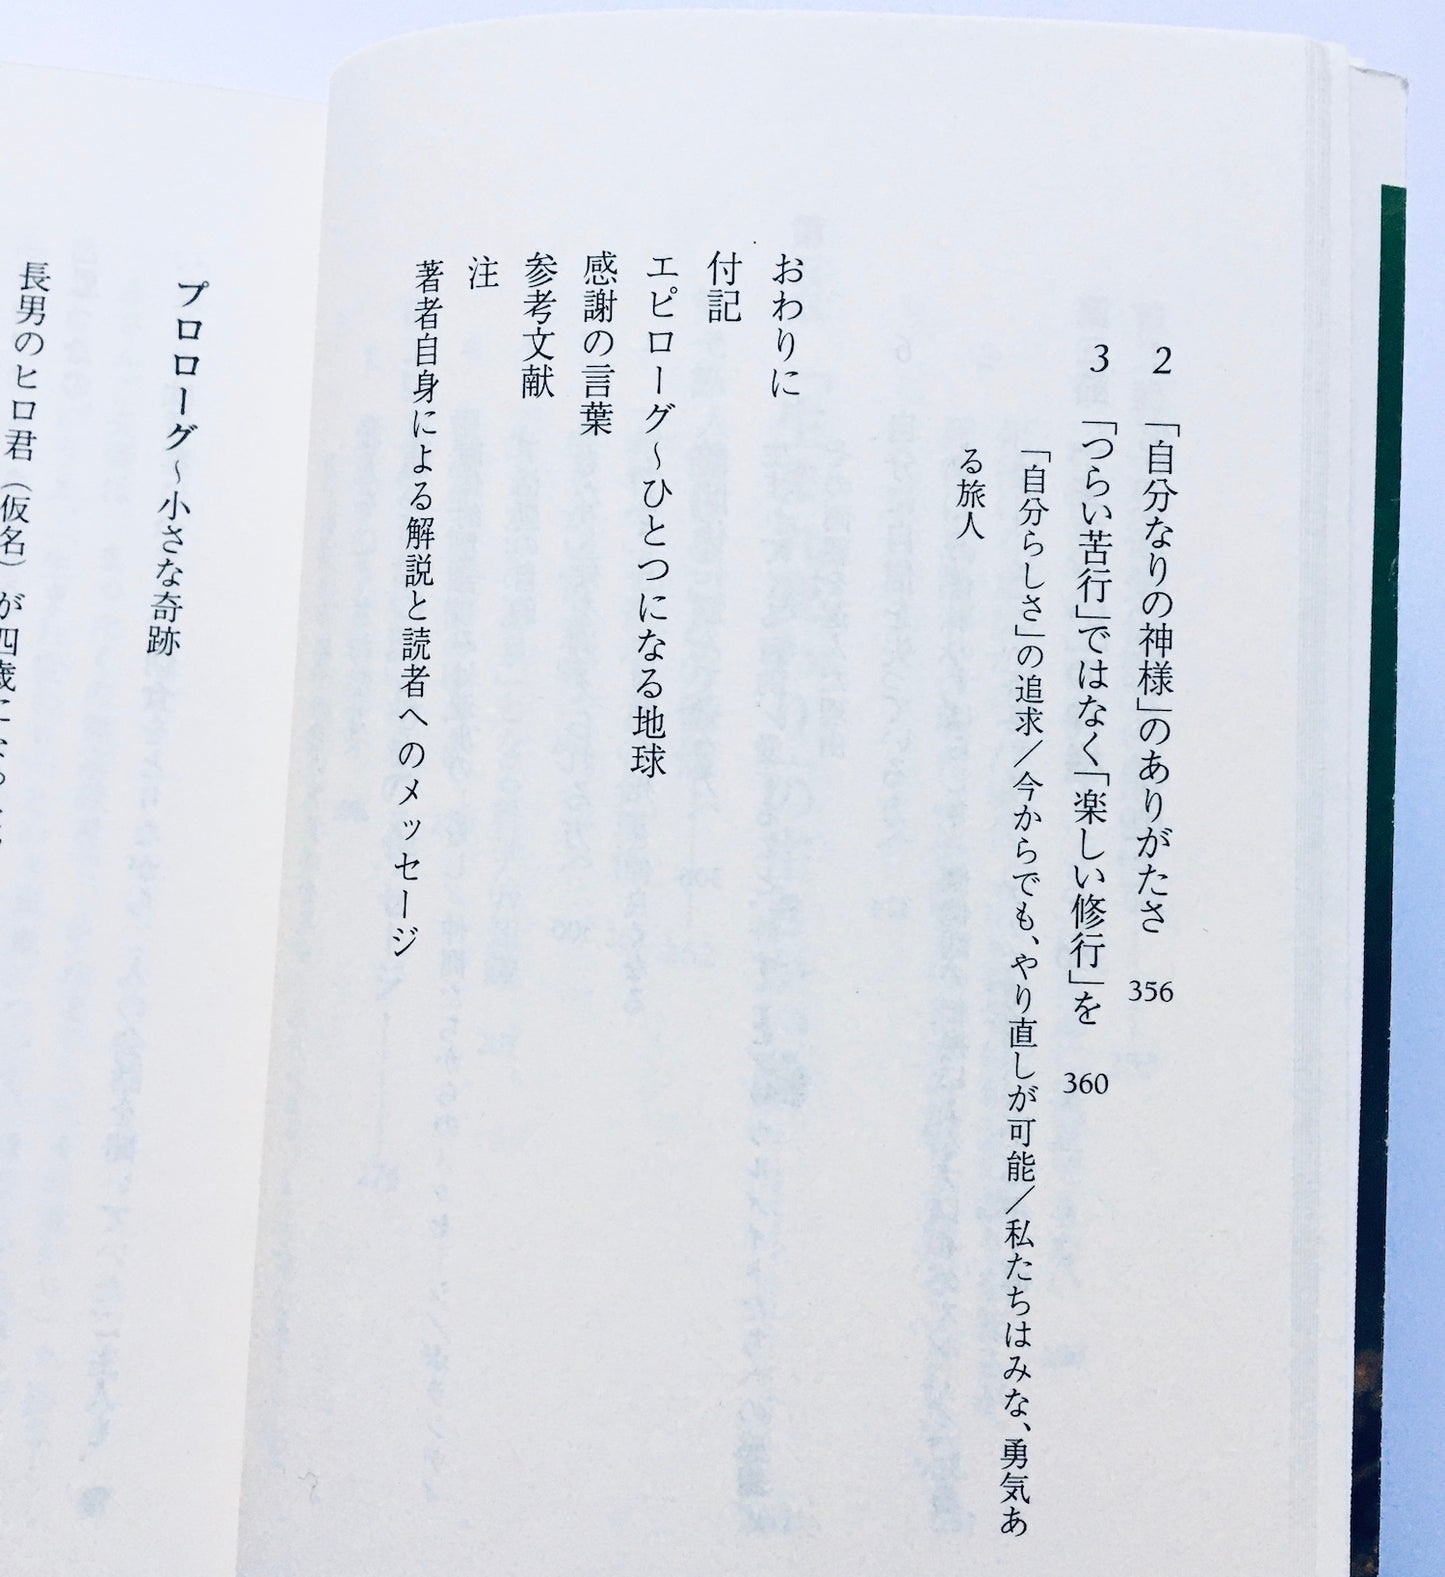 2 「自分なりの神様」のありがたさ 356
3 「つらい苦行」ではなく「楽しい修行」を 360
「自分らしさ」の追求／今からでも、やり直しが可能／私たちはみな、勇気あ
る旅人
おわりに
付記
エピローグ〜ひとつになる地球
感謝の言葉
参考文献
注
著者自身による解説と読者へのメッセージ
プロローグ〜小さな奇跡
長男のヒロ君（仮名）が四歳になった